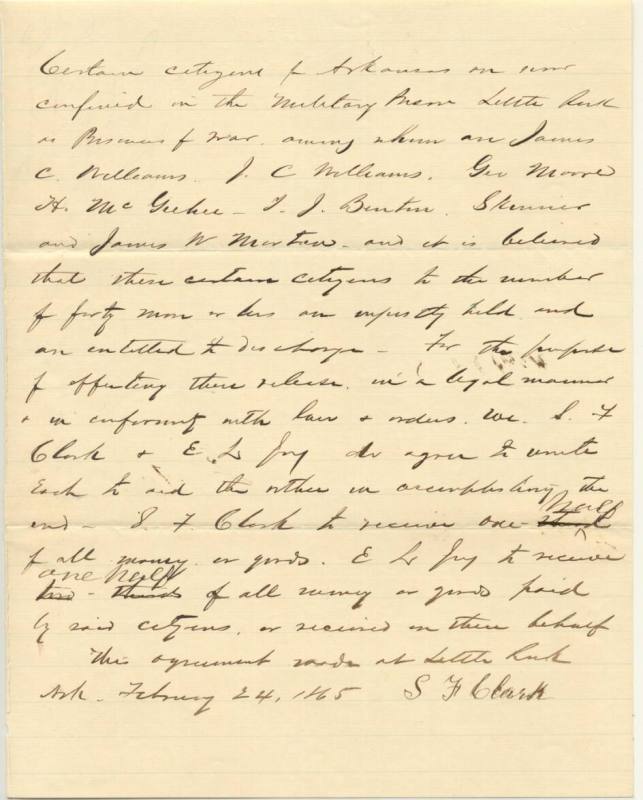 Certain citizens of Arkansas are now
confined in the Military Prison Little Rock
as Prisoners of War. among whom are James
C. Williams. J. C Williams. Geo Moore
H. McGehee - T. J. Benton. Skinner
and James W Morton - and it is believed
that these certain citizens to the number
of forty more or less are unjustly held and
are entitled to discharge - For the purpose
of effecting there release. in a legal manner
& in conformity with law & orders. We. S. F
Clark & E L Joy do agree to unite
Each to aid the other in accomplishing the
end - S. F. Clark to receive one half
of all money or goods. E L Joy to receive
one half
two - thirds of all money or goods paid
by said citizens. or received on there behalf
This agreement made at Little Rock
Ark. February 24, 1865 S F Clark